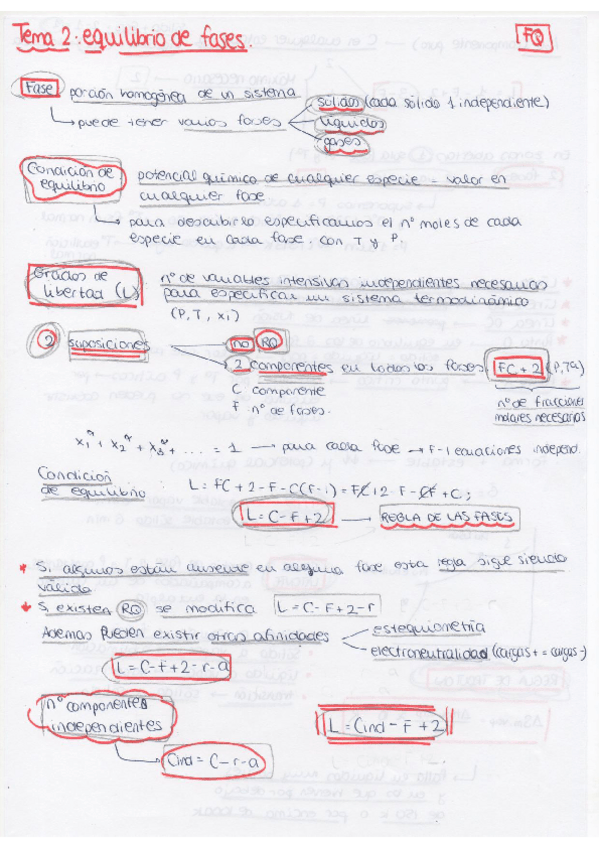 Tema 2: equilibrio de fases. FQ
Fase porción homogénea de un sistema
puede tener varias fases
sólidos (cada sólido 1 independiente)
líquidos
gases
Condición de equilibrio
potencial químico de cualquier especie = valor en
cualquier fase
para describirlo especificamos el nº moles de cada
especie en cada fase, con T y P.
Grados de
libertad (L)
nº de variables intensivas independientes necesarias
para especificar un sistema termodinámico
(P, T, xi)
2 suposiciones
no RQ
2 componentes en todas las fases FC + 2 (P, Tª)
C componente
F nº de fases.
nº de fracciones
molares necesarias
x₁^α + x₂^α + x₃^α + ... = 1 → para cada fase → F-1 ecuaciones independ.
Condición
de equilibrio : L = FC + 2 - F - C(F-1) = FC + 2 - F - CF + C;
L = C - F + 2 → REGLA DE LAS FASES
* Si algunos están ausente en alguna fase esta regla sigue siendo
válida
* Si existen RQ se modifica L = C - F + 2 - r
Ademas pueden existir otras afinidades
estequiometría
electroneutralidad (cargas + = cargas -)
L = C - F + 2 - r - a
nº componentes
independientes
L = Cind - F + 2
Cind = C - r - a